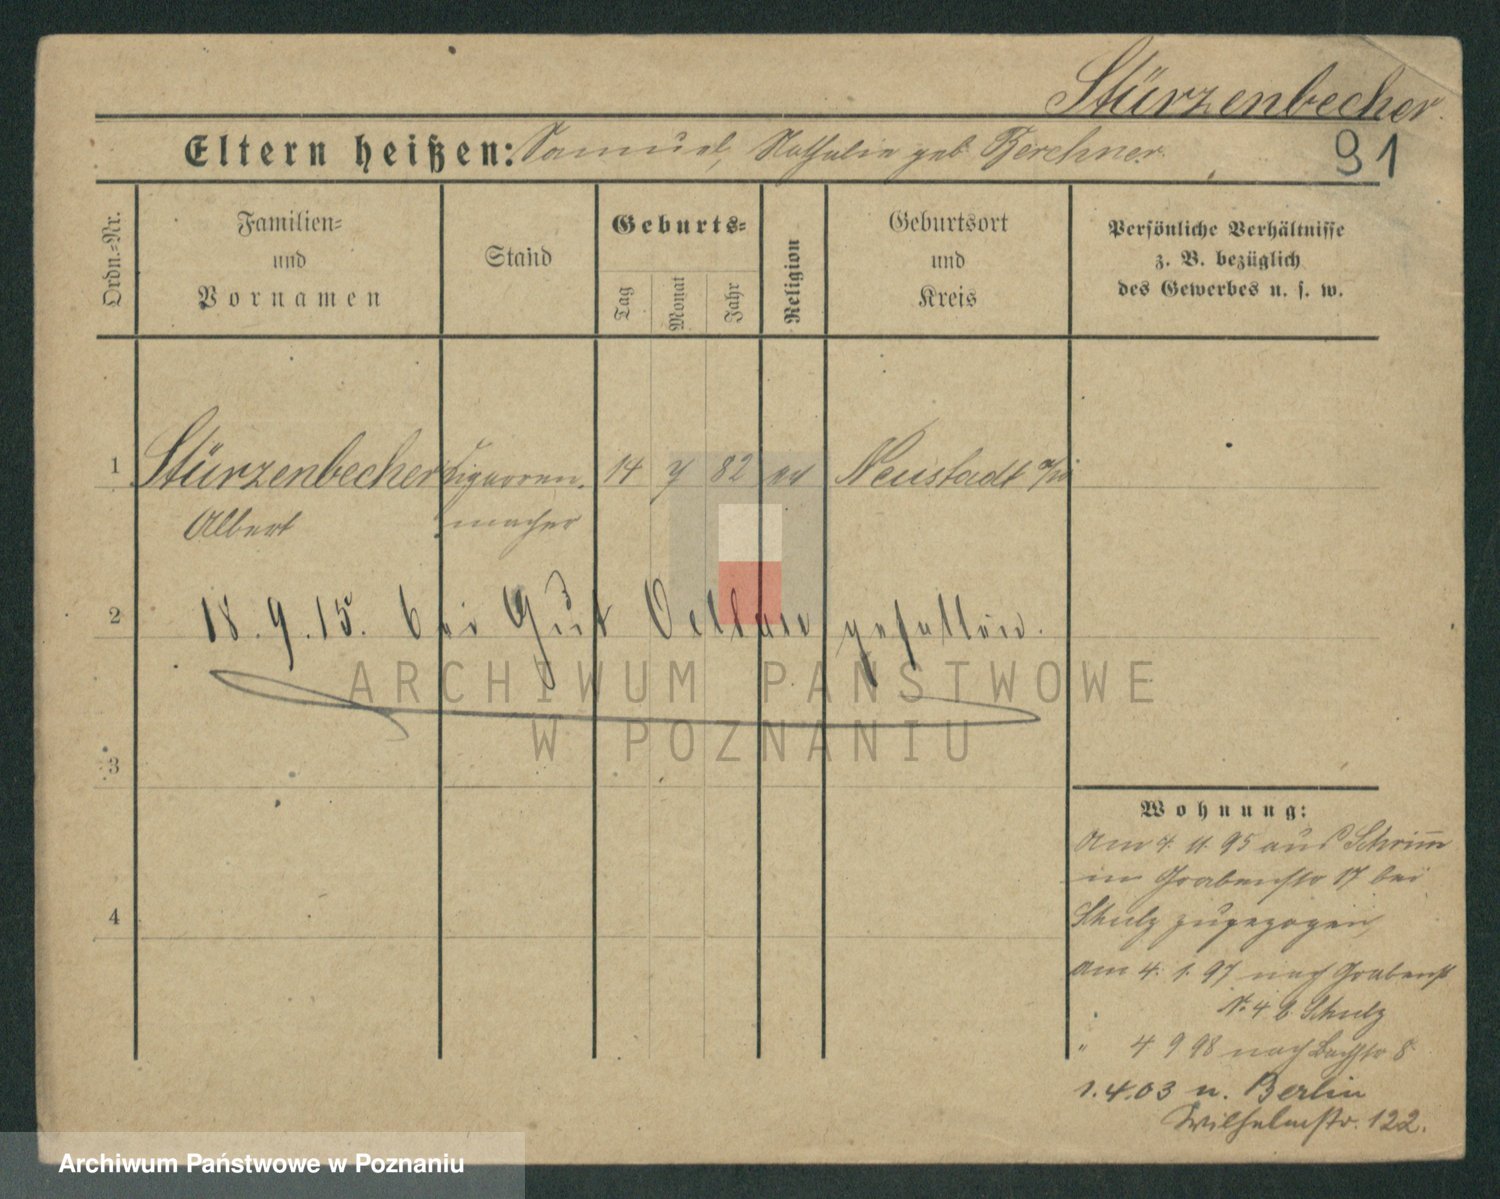 Stürzenbecher.
91
Eltern heißen: Samuel, Nathalie geb. Berchner
Ordn.=Nr.
Familien=
und
Vornamen
Stand
Geburts=
Tag
Monat
Jahr
Religion
Geburtsort
und
Kreis
Persönliche Verhältnisse
z. B. bezüglich
des Gewerbes u. s. w.
1 Stürzenbecher 14 7 82 ev Neustadt
Albert macher
2 18. 9. 15. bei Gut gefallen.
ARCHIWUM PAŃSTWOWE
W POZNANIU
3
4
Wohnung:
Am 4. 11. 95 aus Schrimm
in Grabenstr 17 bei
Schulz zugezogen
Am 4. 1. 97 nach Grabenst
Nr. 4 b. Schulz
" 4 9 98 nach Bachstr 8
1. 4. 03 n. Berlin
Wilhelmstr. 122.
Archiwum Państwowe w Poznaniu